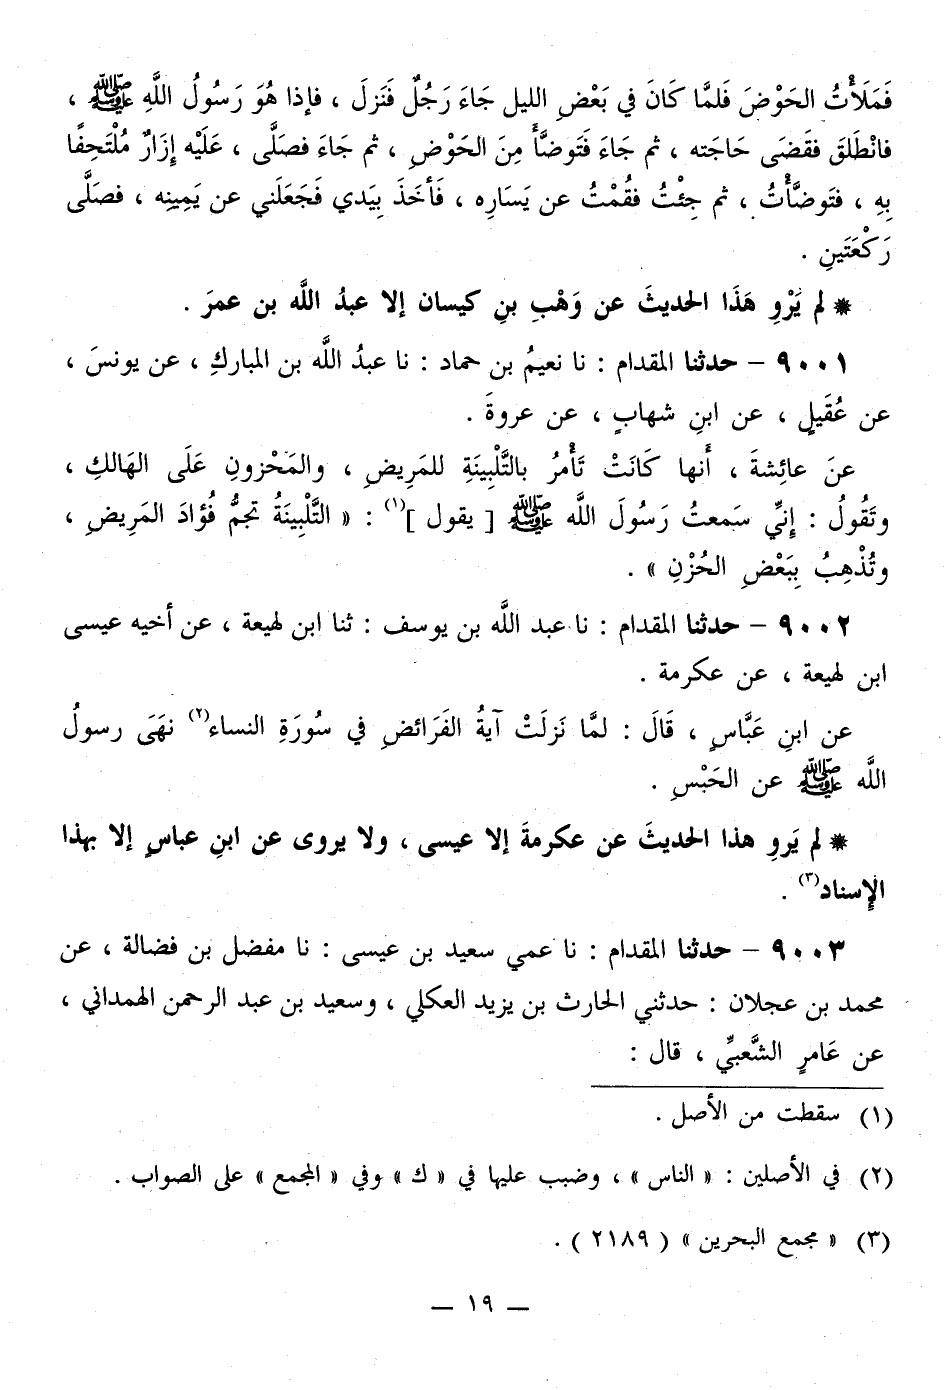 فَمَلَأْتُ الحَوْضَ فَلمَّا كَانَ في بَعْضِ الليل جَاءَ رَجُلٌ فَنَزلَ ، فإذا هُوَ رَسُولُ اللَّهِ ﷺ ،
فانْطَلَقَ فقَضَى حَاجَته ، ثم جَاءَ فَتَوضَّأَ مِنَ الحَوْضِ ، ثم جَاءَ فصَلَّى ، عَلَيْه إزَارٌ مُلْتَحِفًا
بِهِ ، فتَوضَّأْتُ ، ثم جِئْتُ فقُمْتُ عن يَسَارِه ، فَأخَذَ بِيَدي فَجَعَلَني عن يَمِينِه ، فصَلَّى
رَكْعَتَينِ .
* لم يَرْوِ هَذَا الحديثَ عن وَهْبِ بنِ كيسان إلا عبدُ اللَّه بن عمرَ .
٩٠٠١ – حدثنا المقدام : نا نعيمُ بن حماد : نا عبدُ اللَّه بن المباركِ ، عن يونسَ ،
عن عُقَيلٍ ، عن ابنِ شهابٍ ، عن عروةَ .
عنَ عائِشةَ ، أَنها كَانَتْ تَأْمرُ بالتَّلْبِينَةِ للمَرِيضِ ، والمَحْزونِ عَلَى الهَالكِ ،
وتَقُولُ : إنيِّ سَمعتُ رَسُولَ اللَّه ﷺ [ يقول ](١) : « التَّلْبِينَةُ تجمُّ فُؤَادَ المَرِيضِ ،
وتُذْهِبُ بِبَعْضِ الحُزْنِ » .
٩٠٠٢ – حدثنا المقدام : نا عبد اللَّه بن يوسف : ثنا ابن لهيعة ، عن أخيه عيسى
ابن لهيعة ، عن عكرمة .
عن ابنِ عَبَّاسٍ ، قَالَ : لمَّا نَزلَتْ آيةُ الفَرَائضِ في سُورَةِ النساء(٢) نهَى رسولُ
اللَّه ﷺ عن الحَبْسِ .
* لم يَروِ هذا الحديثَ عن عكرمةَ إلا عيسى ، ولا يروى عن ابنِ عباسٍ إلا بهذا
الإسناد(٣) .
٩٠٠٣ – حدثنا المقدام : نا عمي سعيد بن عيسى : نا مفضل بن فضالة ، عن
محمد بن عجلان : حدثني الحارث بن يزيد العكلي ، وسعيد بن عبد الرحمن الهمداني ،
عن عَامرٍ الشَّعبيِّ ، قال :
(١) سقطت من الأصل .
(٢) في الأصلين : « الناس » ، وضبب عليها في « ك » وفي « المجمع » على الصواب .
(٣) « مجمع البحرين » ( ٢١٨٩ ) .
— ١٩ —